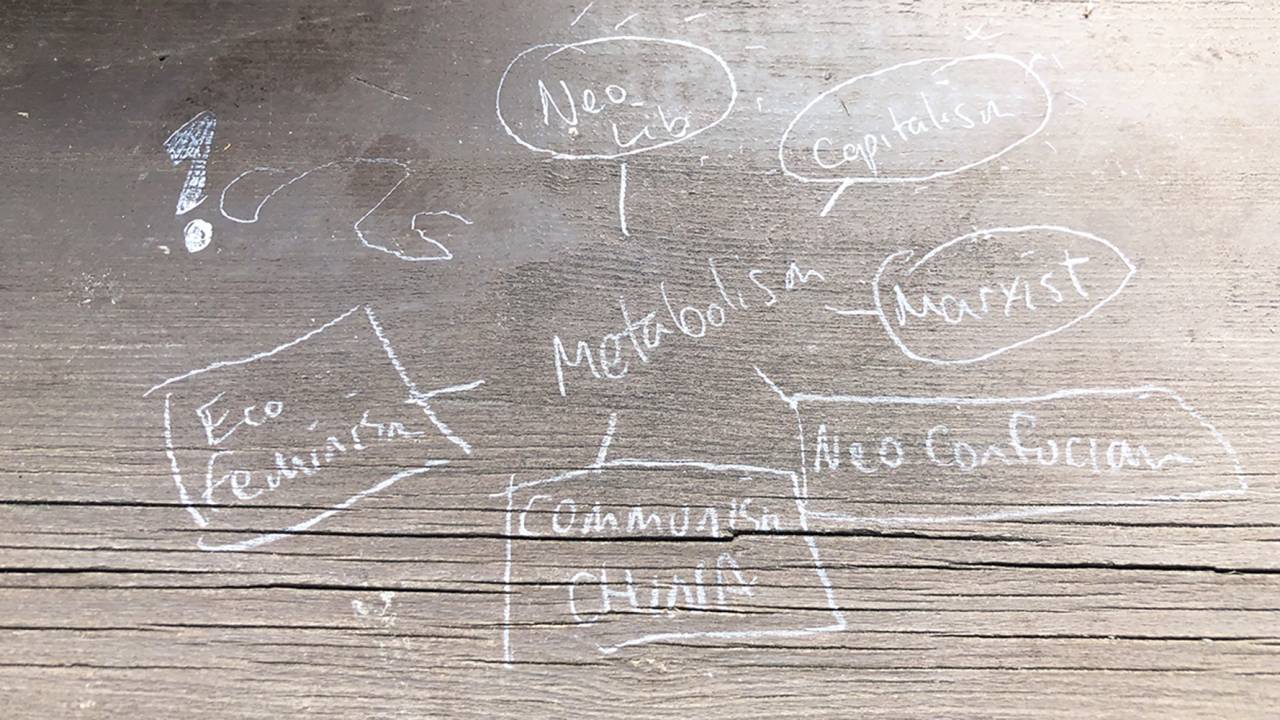 Neo-
Lib
Capitalism
!
Metabolism
Marxist
Eco
Feminism
Neo Confucian
Communism
CHINA